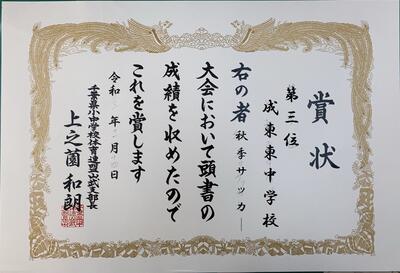 賞状
第三位
成東東中学校
右の者秋季サッカー
大会において頭書の
成績を収めたので
これを賞します
令和 年 月 日
千葉県小中学校体育連盟山武支部長
上之薗和朗